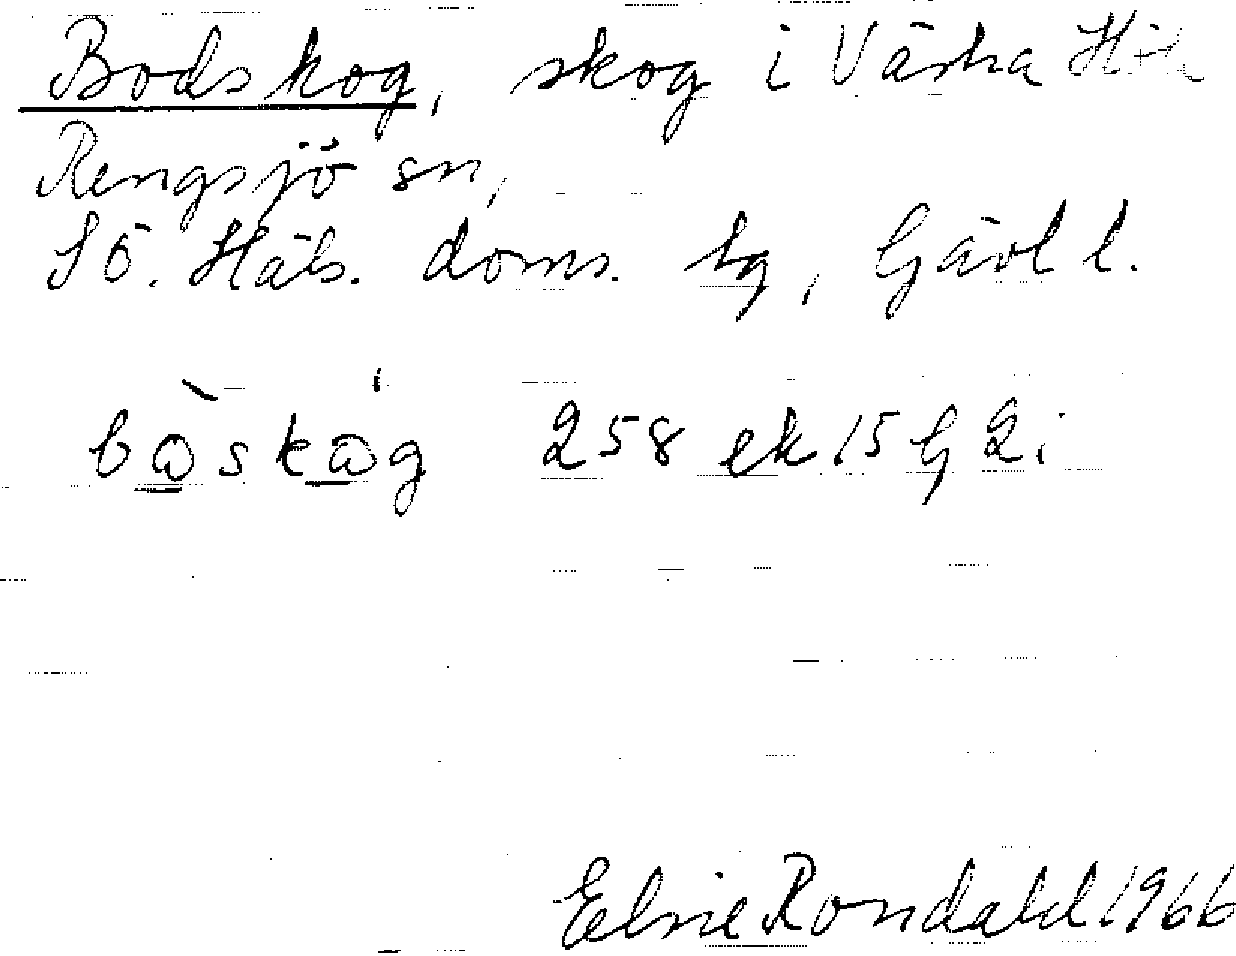 Bodskog, skog i Västra Höle
Rengsjö sn,
Sö. Häls. doms. tg, Gävl l.
bòskòg 258 ek 15 G 2 i
Elsie Rondahl 1966